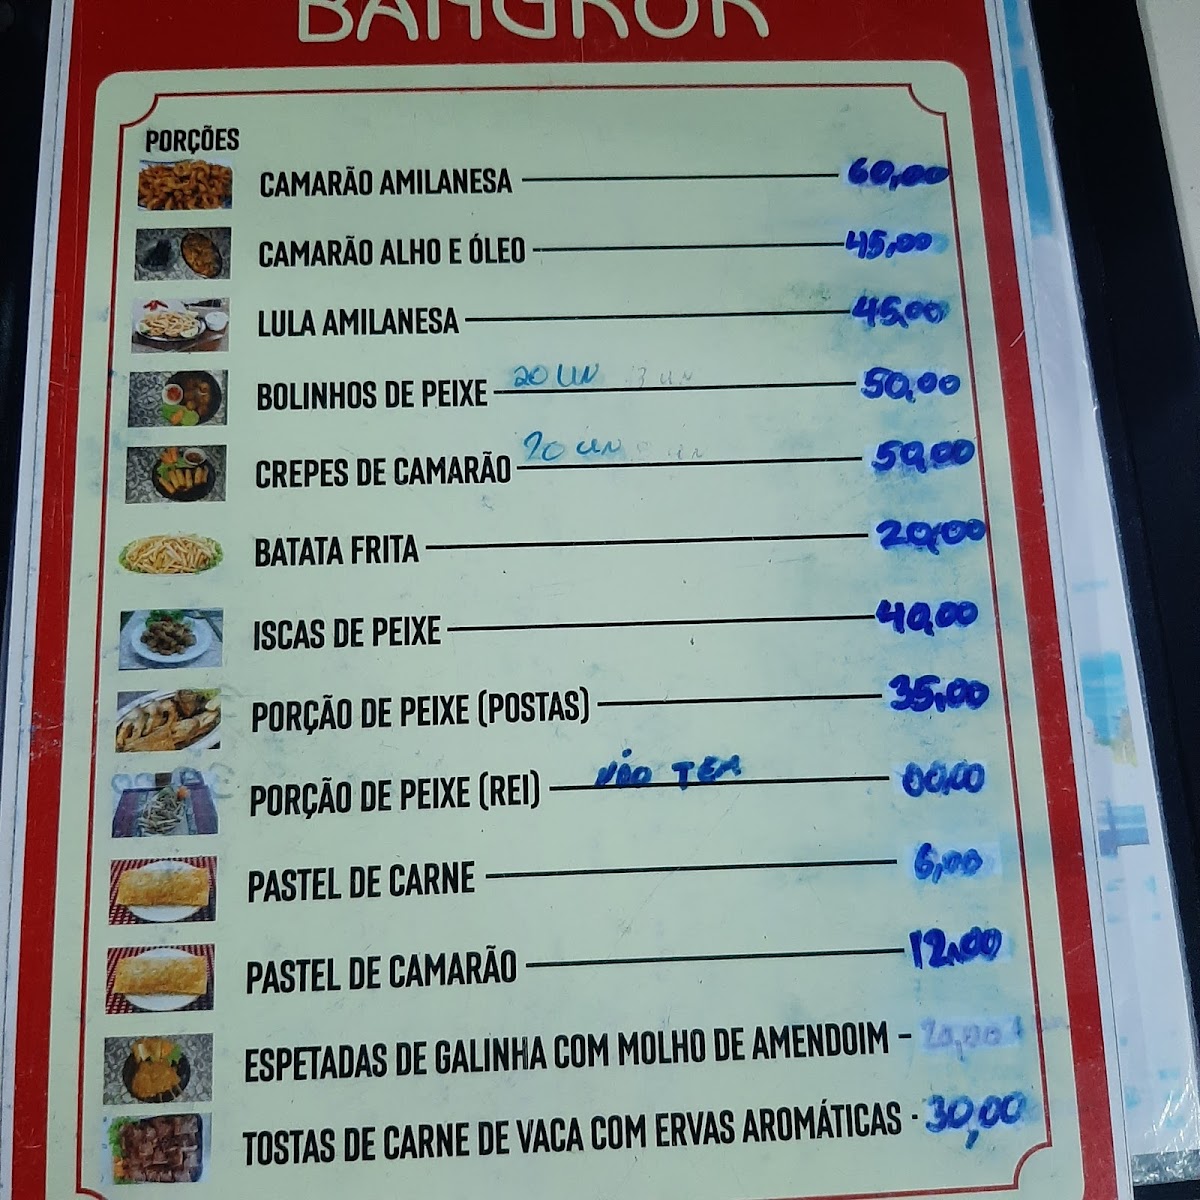 BANGKOK
PORÇÕES
CAMARÃO AMILANESA 60,00
CAMARÃO ALHO E ÓLEO 45,00
LULA AMILANESA 45,00
BOLINHOS DE PEIXE 20 UN 50,00
CREPES DE CAMARÃO 20 UN 50,00
BATATA FRITA 20,00
ISCAS DE PEIXE 40,00
PORÇÃO DE PEIXE (POSTAS) 35,00
PORÇÃO DE PEIXE (REI) NÃO TEM 00,00
PASTEL DE CARNE 6,00
PASTEL DE CAMARÃO 12,00
ESPETADAS DE GALINHA COM MOLHO DE AMENDOIM – 20,00
TOSTAS DE CARNE DE VACA COM ERVAS AROMÁTICAS - 30,00